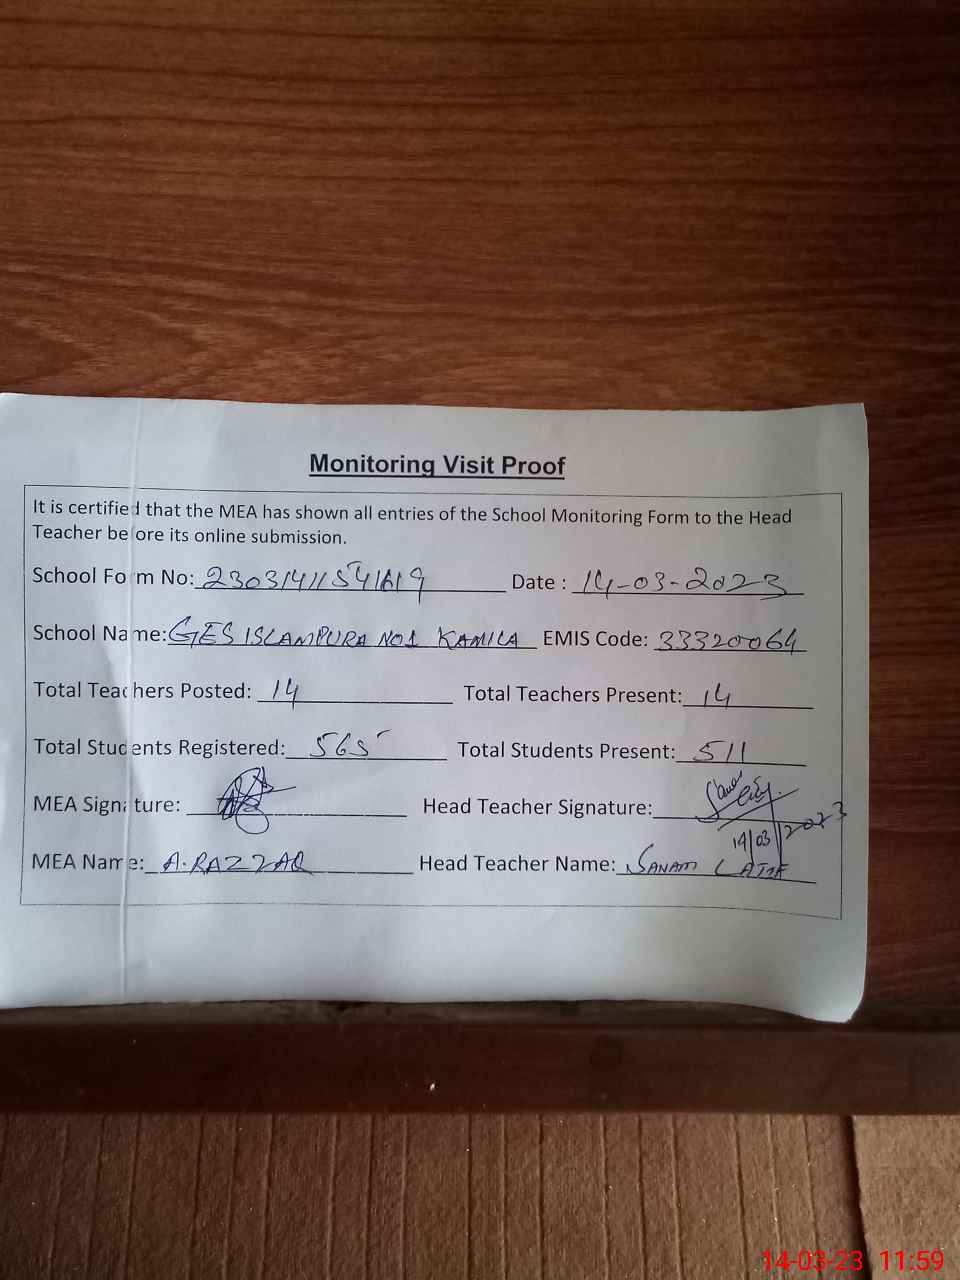 Monitoring Visit Proof
It is certified that the MEA has shown all entries of the School Monitoring Form to the Head
Teacher before its online submission.
School Form No: Date : 14-03-2023
School Name: GES ISLAMPURA NO1 KAMILA EMIS Code: 33320064
Total Teachers Posted: 14 Total Teachers Present: 14
Total Students Registered: 565 Total Students Present: 511
MEA Signature: Head Teacher Signature:
14/03/2023
MEA Name: A.RAZZAQ Head Teacher Name: SANAM LATIF
14-03-23 11:59